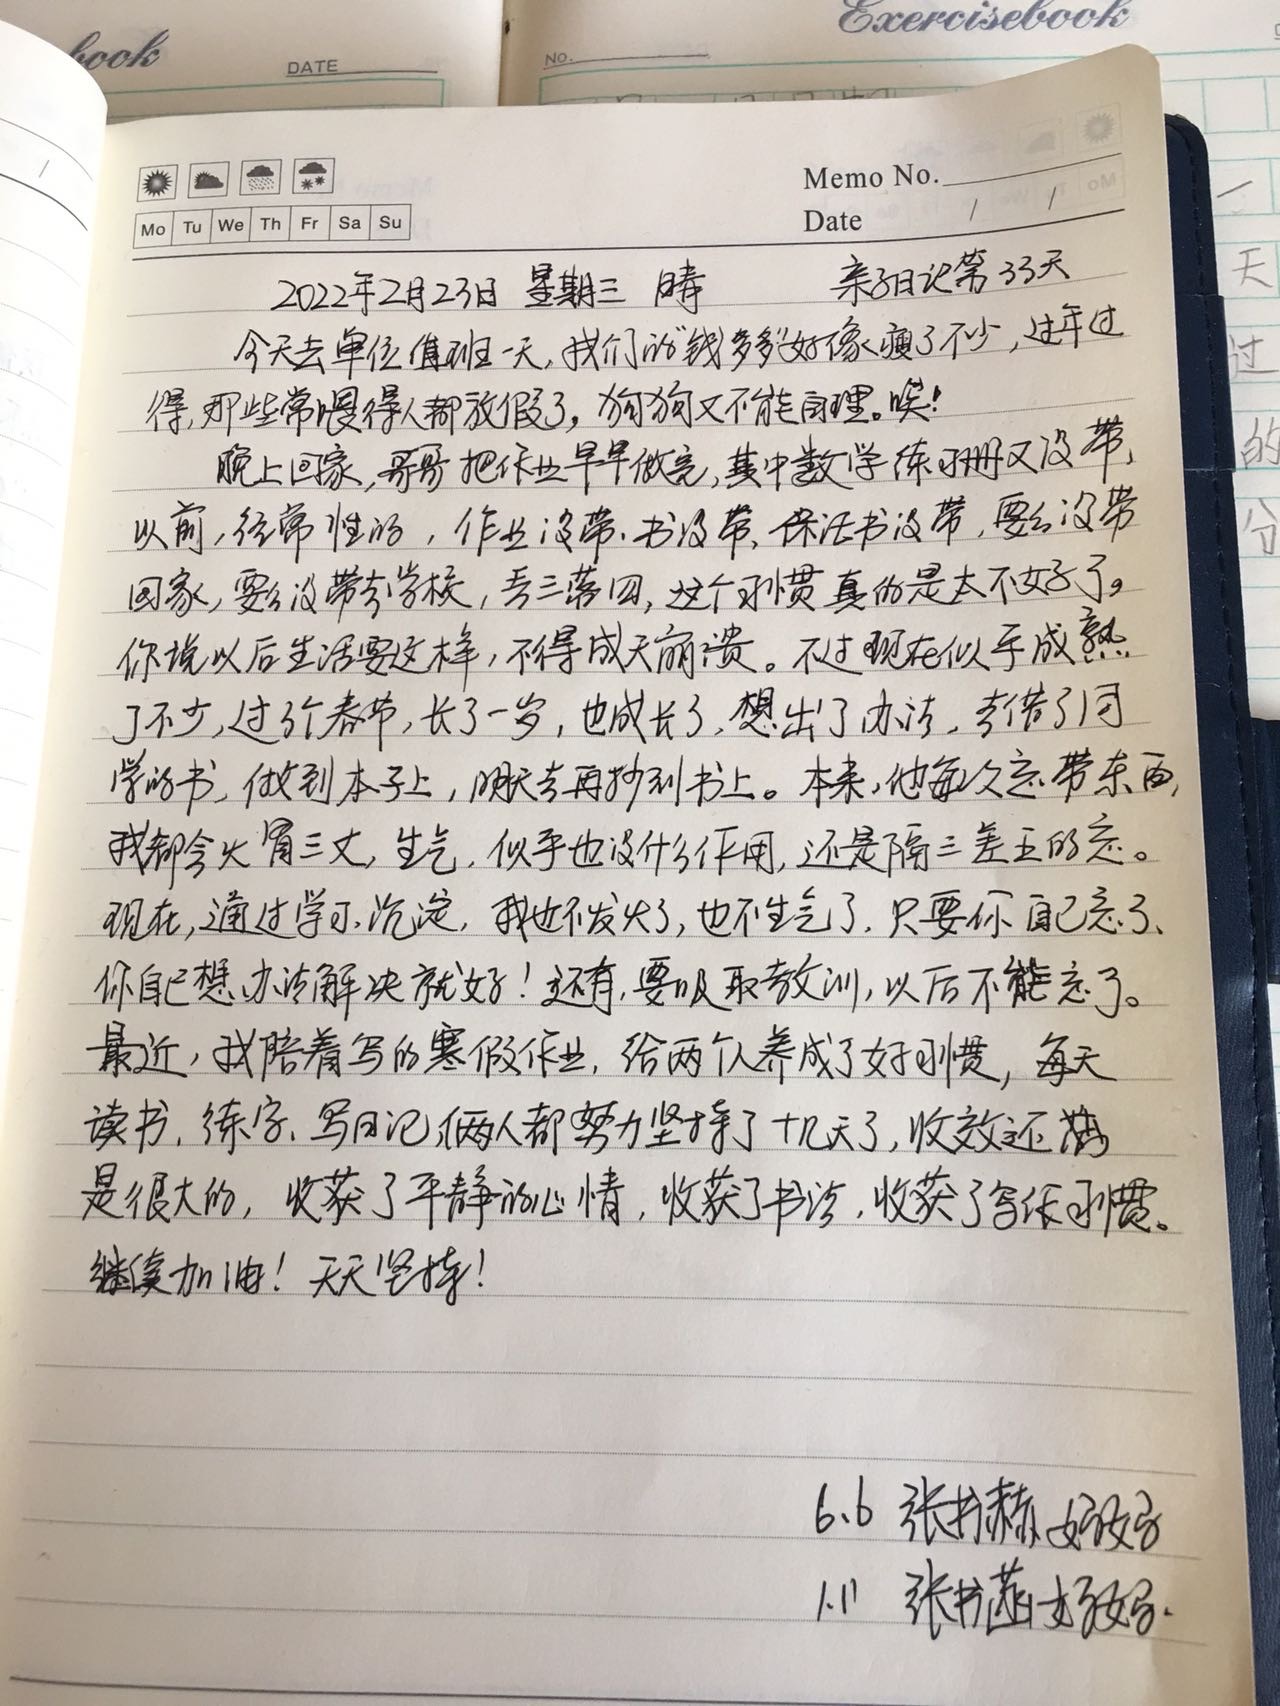 book
DATE
Exercisebook
No.
Memo No.
Mo Tu We Th Fr Sa Su
Date / /
2022年2月23日 星期三 晴 亲子日记第33天
今天去单位值班一天,我们的"钱多多"好像瘦了不少,过年过
得,那些常喂得人都放假了,狗狗又不能自理。唉!
晚上回家,哥哥把作业早早做完,其中数学练习册又没带,
以前,经常性的,作业没带、书没带、保证书没带,要么没带
回家,要么没带去学校,丢三落四,这个习惯真的是太不好了。
你说以后生活要这样,不得成天崩溃。不过现在似乎成熟
了不少,过了个春节,长了一岁,也成长了,想出了办法,去借了同
学的书,做到本子上,明天去再抄到书上。本来,他每次忘带东西,
我都会火冒三丈,生气,似乎也没什么作用,还是隔三差五的忘。
现在,通过学习、沉淀,我也不发火了,也不生气了,只要你自己忘了、
你自己想办法解决就好!还有,要吸取教训,以后不能忘了。
最近,我陪着写的寒假作业,给两个人养成了好习惯,每天
读书,练字、写日记,俩人都努力坚持了十几天了,收效还
是很大的,收获了平静的心情,收获了书法,收获了写作习惯。
继续加油!天天坚持!
6.6 张书赫妈妈
1.11 张书菡妈妈.
一
天
过
的
分